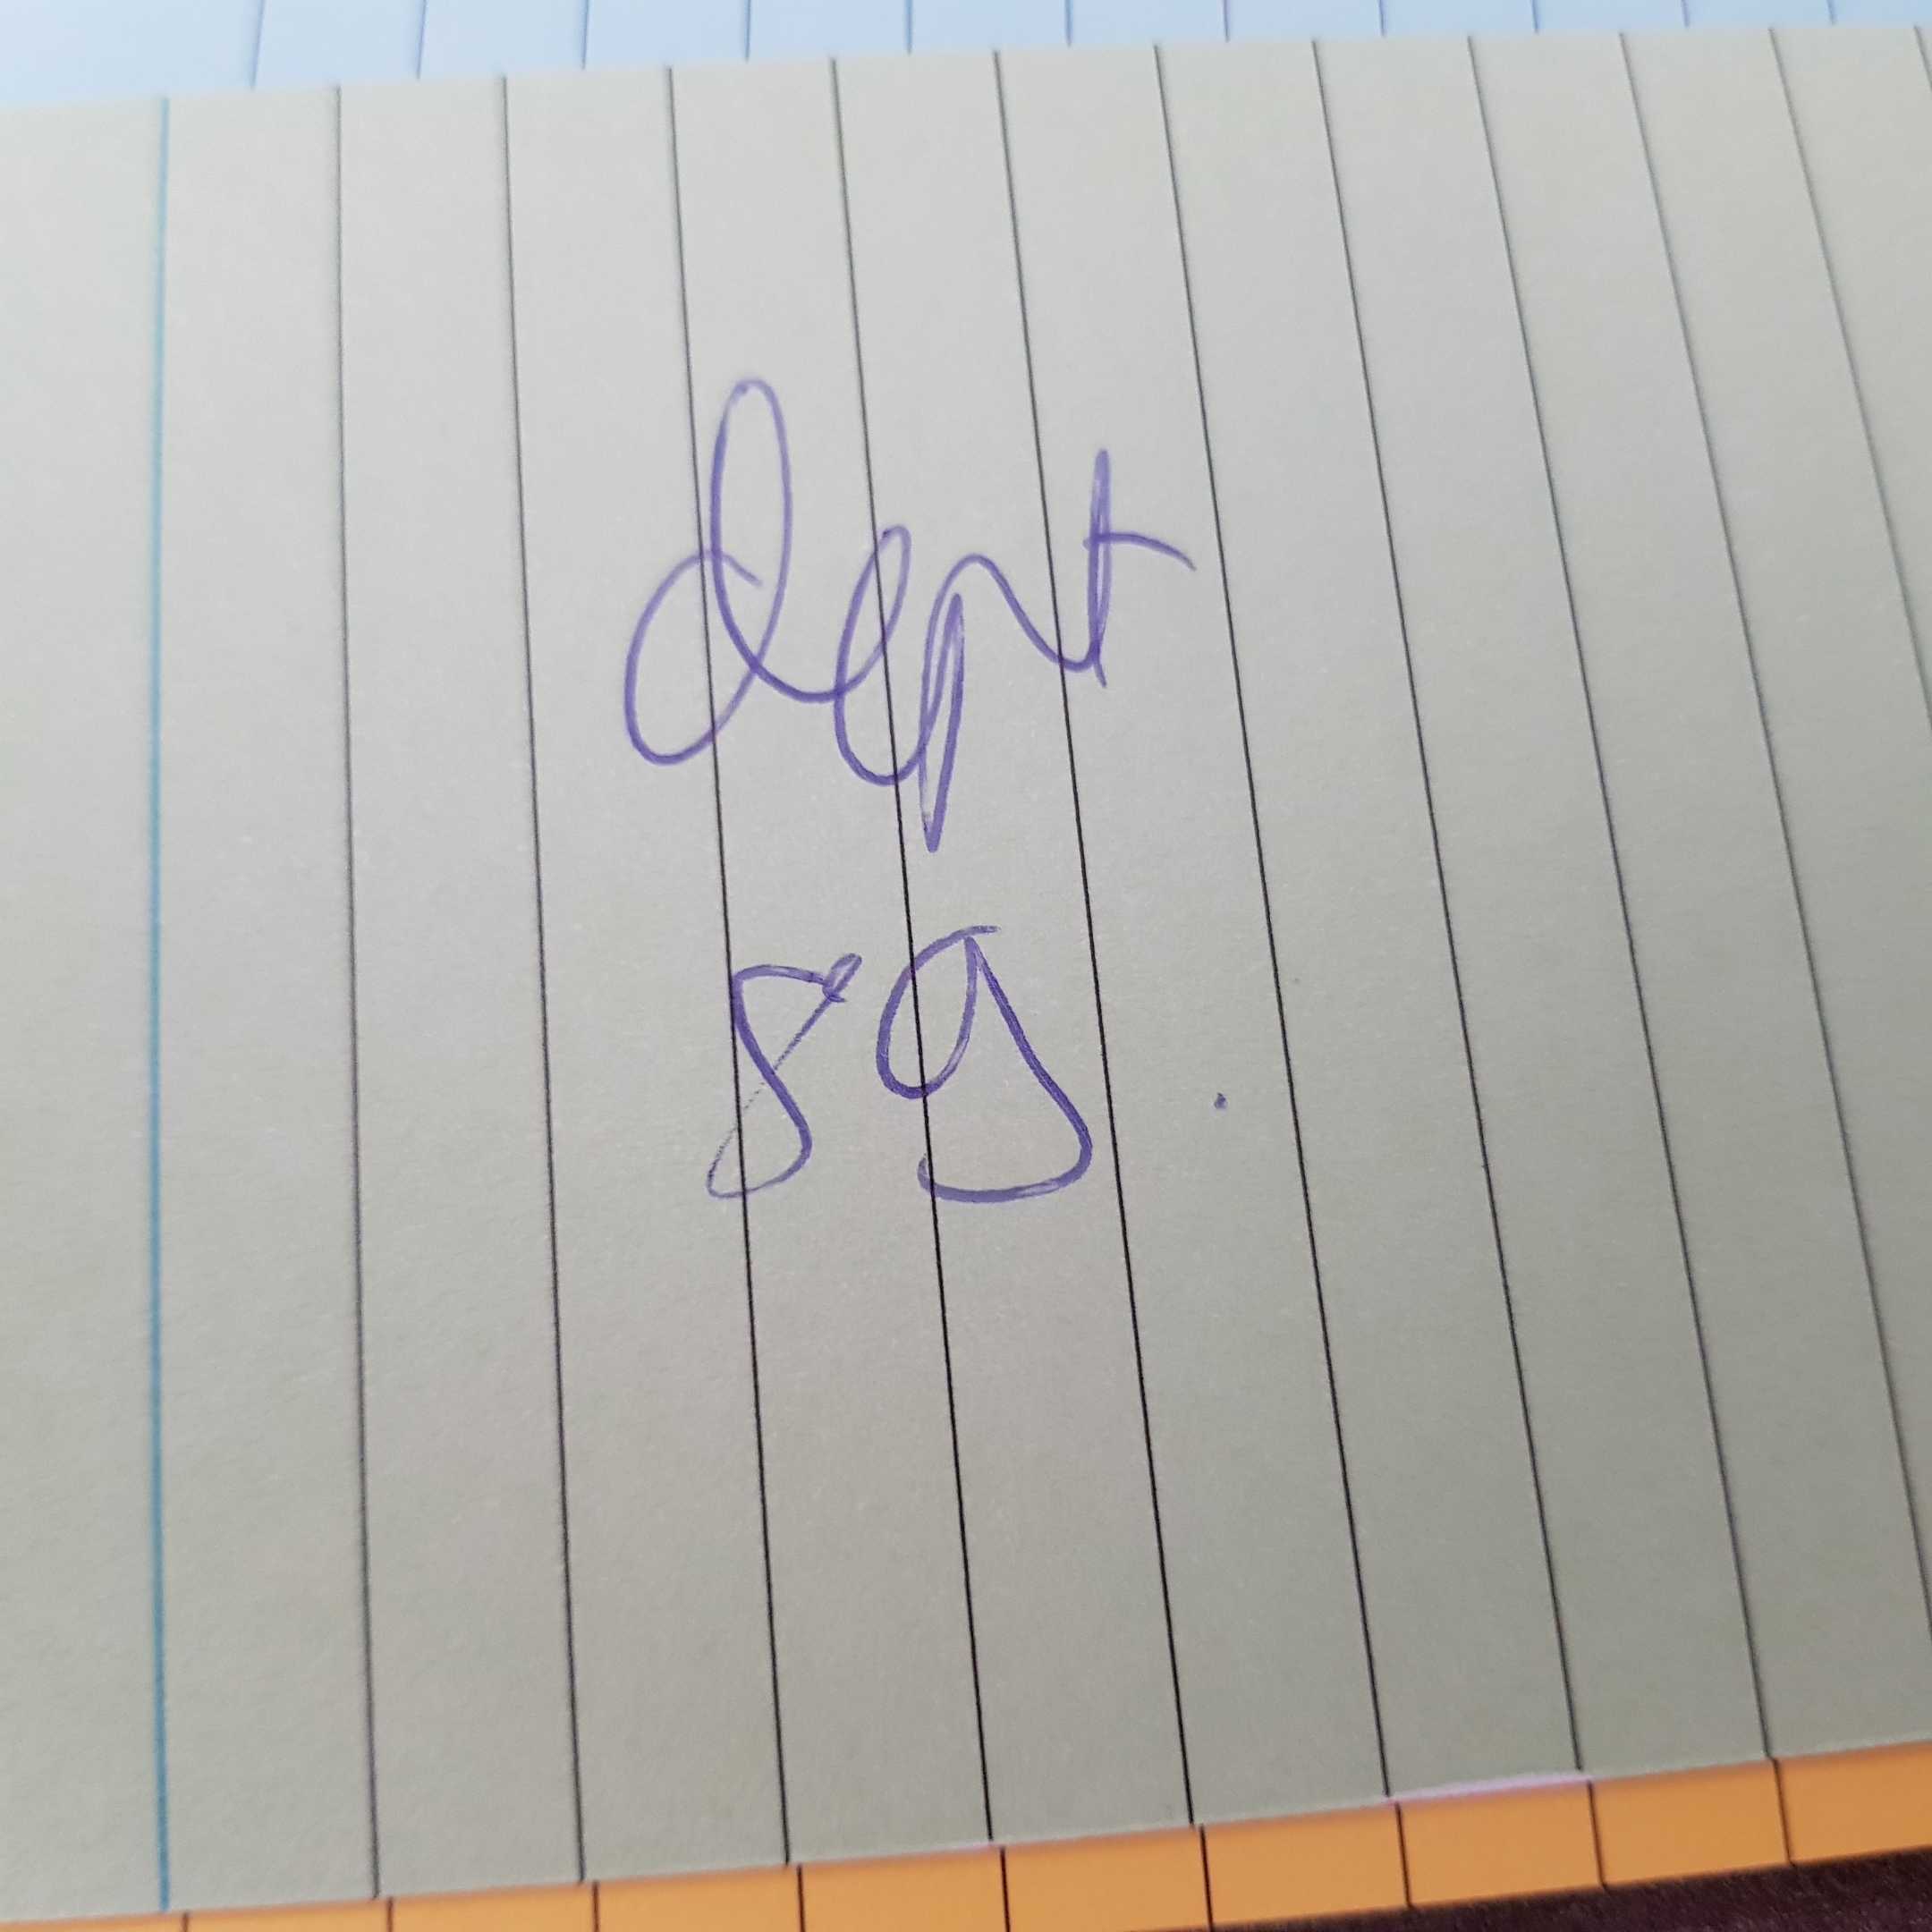 dept
89